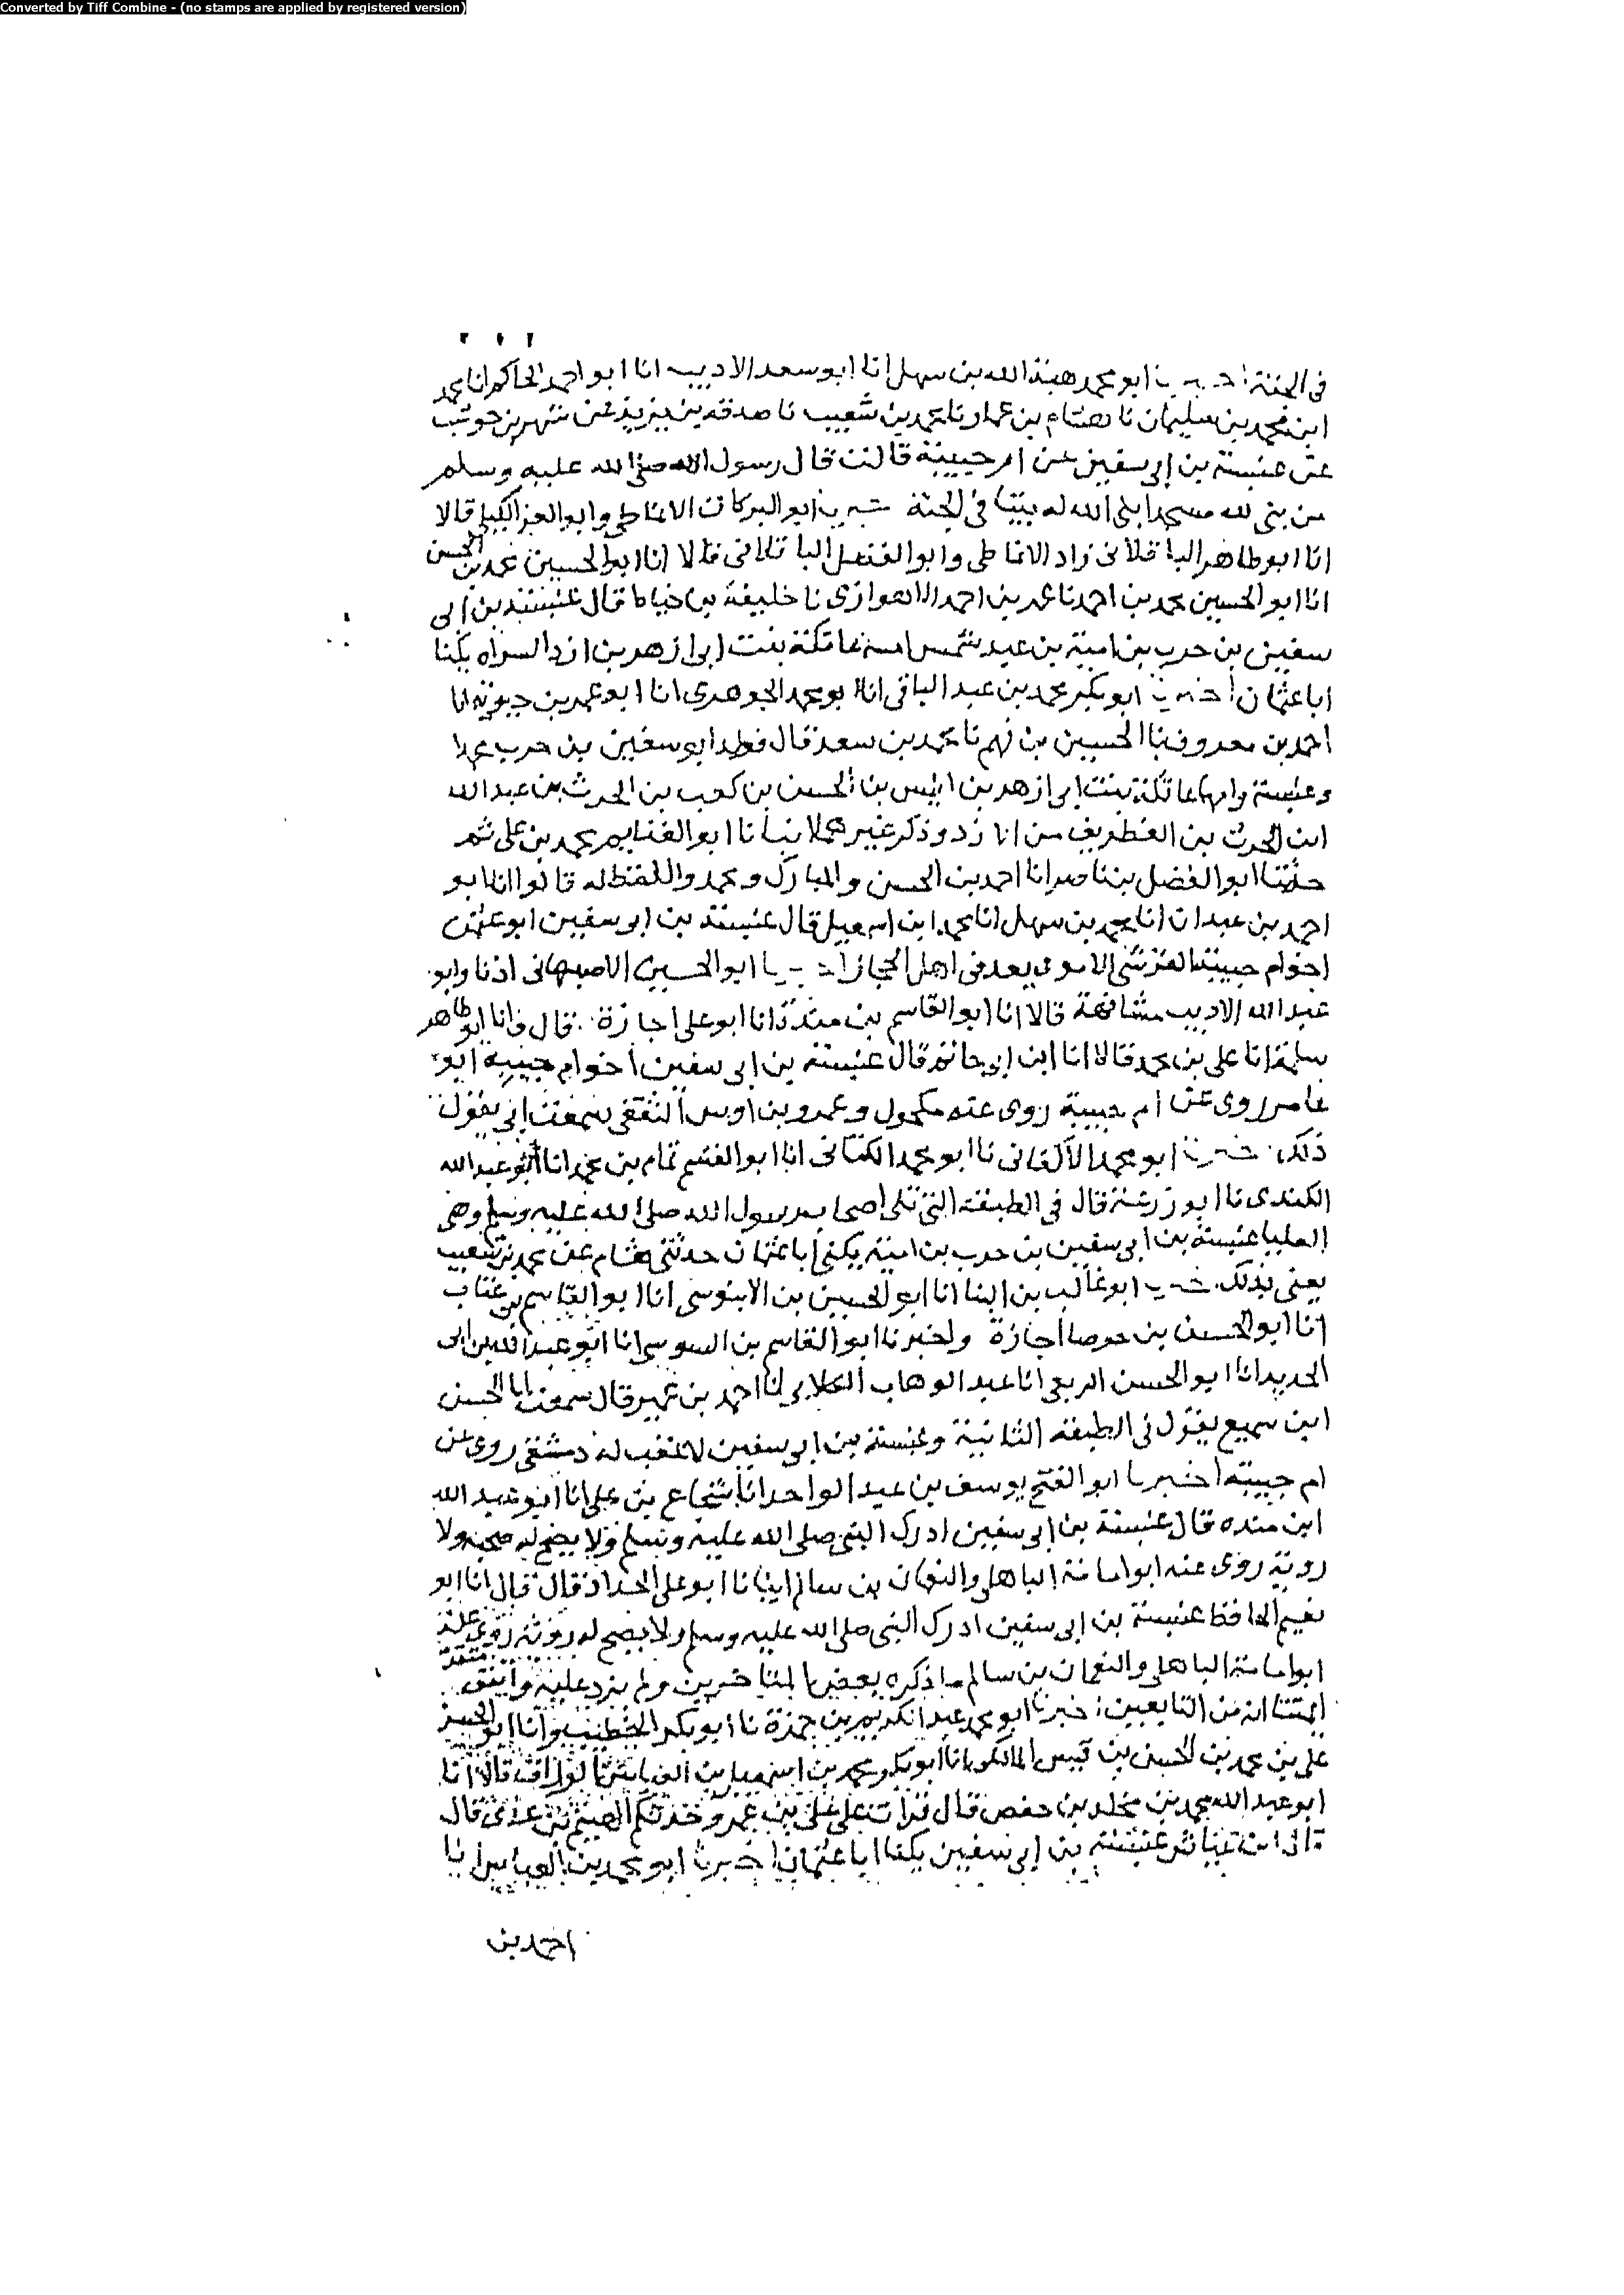 Converted by Tiff Combine - (no stamps are applied by registered version)
في الجنة اخبرنا ابو محمد هبة الله بن سهل انا ابو سعد الاديب انا ابو احمد الحاكم انا محمد
ابن محمد بن سليمان نا هشام بن عمار نا محمد بن شعيب نا صدقه بن يزيد عن شهر بن حوشب
عن عنبسة بن ابي سفين عن ام حبيبة قالت قال رسول الله صلى الله عليه وسلم
من بنى لله مسجدا بنى الله له بيتا في الجنة اخبرنا ابو البركات الانماطي وابو العز الكيلي قالا
انا ابو طاهر الباقلاني زاد الانماطي وابو الفضل الباقلاني قالا انا ابو الحسين محمد بن الحسن
انا ابو الحسين محمد بن احمد نا عمر بن احمد الاهوازي نا خليفة بن خياط قال عنبسة بن ابي
سفين بن حرب بن امية بن عبد شمس امه عاتكة بنت ابي ازهر بن ازد السراه يكنا
ابا عثمان اخبرنا ابو بكر محمد بن عبد الباقي انا ابو محمد الجوهري انا ابو عمر بن حيوية انا
احمد بن معروف نا الحسين بن فهم نا محمد بن سعد قال فولد ابو سفين بن حرب محمدا
وعنبسة وامهما عاتكة بنت ابي ازهر بن انيس بن الحسن بن كعب بن الحرث بن عبد الله
ابن الحرث بن الغطريف من الازد وذكر غيرهما انبانا ابو الغنايم محمد بن علي ثم
حدثنا ابو الفضل بن ناصر انا احمد بن الحسن والمبارك ومحمد واللفظ له قالوا انا ابو
احمد بن عبدان انا محمد بن سهل انا محمد ابن اسمعيل قال عنبسة بن ابو سفين ابو عثمن
اخو ام حبيبة القرشي الاموي يعد في اهل الحجاز اخبرنا ابو الحسين الاصبهاني اذنا وابو
عبد الله الاديب مشافهة قالا انا ابو القاسم بن مندة انا ابو علي اجازة قال وانا ابو طاهر
سلمة انا علي بن محمد قالا انا ابن ابي حاتم قال عنبسة بن ابي سفين اخو ام حبيبة ابو
عامر روى عن ام حبيبة روى عنه مكحول وعمرو بن اوس الثقفي سمعت ابي يقول
ذلك اخبرنا ابو محمد الاكفاني نا ابو محمد الكتاني انا ابو القسم تمام بن محمد انا ابو عبد الله
الكندي نا ابو زرعة قال في الطبقة التي تلي اصحاب رسول الله صلى الله عليه وسلم وهي
العليا عنبسة بن ابي سفين بن حرب بن امية يكنى ابا عثمان حدثني هشام عن محمد بن شعيب
يعني بذلك اخبرنا ابو غالب بن البنا انا ابو الحسين بن الابنوسي انا ابو القاسم بن عتاب
انا ابو الحسن بن جوصا اجازة واخبرنا ابو القاسم بن السوسي انا ابو عبد الله بن ابي
الحديد انا ابو الحسن الربعي انا عبد الوهاب الكلابي انا احمد بن عمير قال سمعت ابا الحسن
ابن سميع يقول في الطبقة الثانية وعنبسة بن ابي سفين لا عقب له دمشقي روى عن
ام حبيبة اخبرنا ابو الفتح يوسف بن عبد الواحد انا شجاع بن علي انا ابو عبد الله
ابن منده قال عنبسة بن ابي سفين ادرك النبي صلى الله عليه وسلم ولا يصح له صحبه ولا
روية روى عنه ابو امامة الباهلي والنعمان بن سالم انبانا ابو علي الحداد قال قال انا ابو
نعيم الحافظ عنبسة بن ابي سفين ادرك النبي صلى الله عليه وسلم ولا يصح له رويه روى عنه
ابو امامة الباهلي والنعمان بن سالم ذكره بعض المتاخرين ولم يزد عليه واتفق
ايمتنا انه من التابعين اخبرنا ابو محمد عبد الكريم بن حمزة نا ابو بكر الخطيب وانا ابو الحسن
علي بن محمد بن الحسن بن قبيس المالكي انا ابو بكر محمد بن اسمعيل بن الوراق قالا انا
ابو عبد الله محمد بن مخلد بن حفص قال قرات على علي بن عمرو حدثكم الهيثم بن عدي قال
قال ابن عياش عنبسة بن ابي سفين يكنا ابا عثمان اخبرنا ابو محمد بن العباس انا
احمد بن